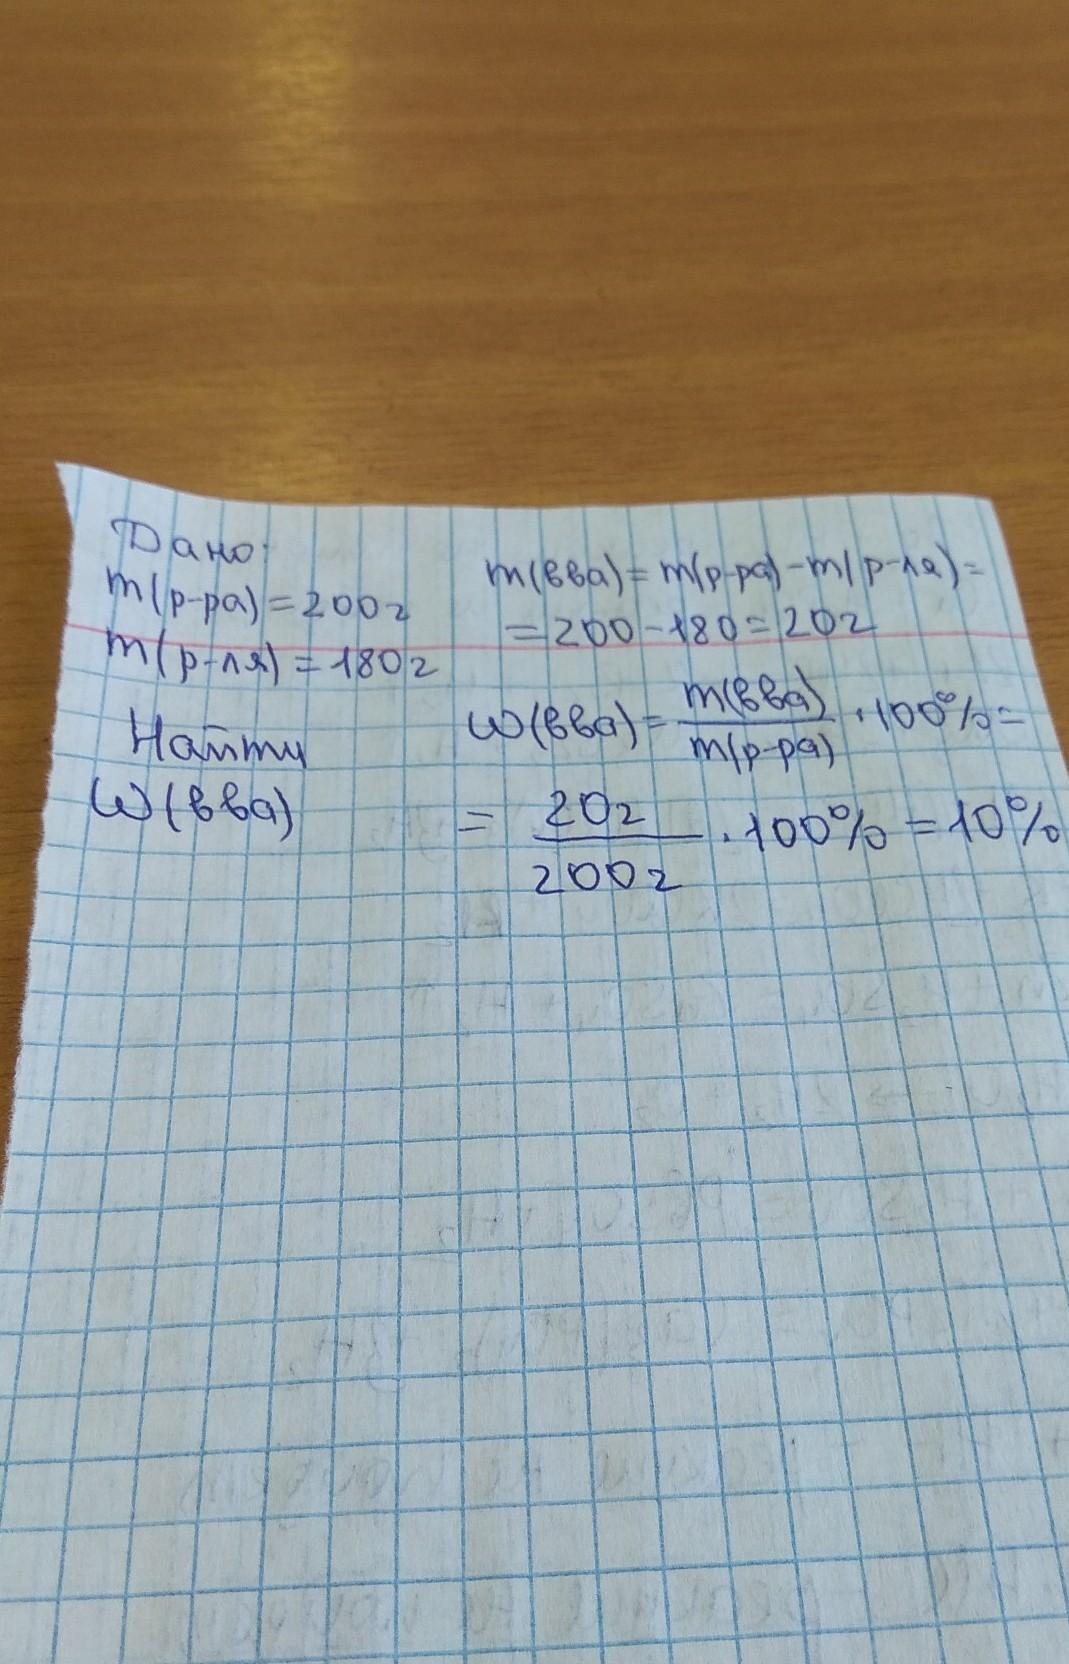 Дано:
m(р-ра)=200г
m(р-ля)=180г
Найти
ω(вва)
m(вва)=m(р-ра)-m(р-ля)=
=200-180=20г
ω(вва)=m(вва)/m(р-ра)·100%=
=20г/200г·100%=10%